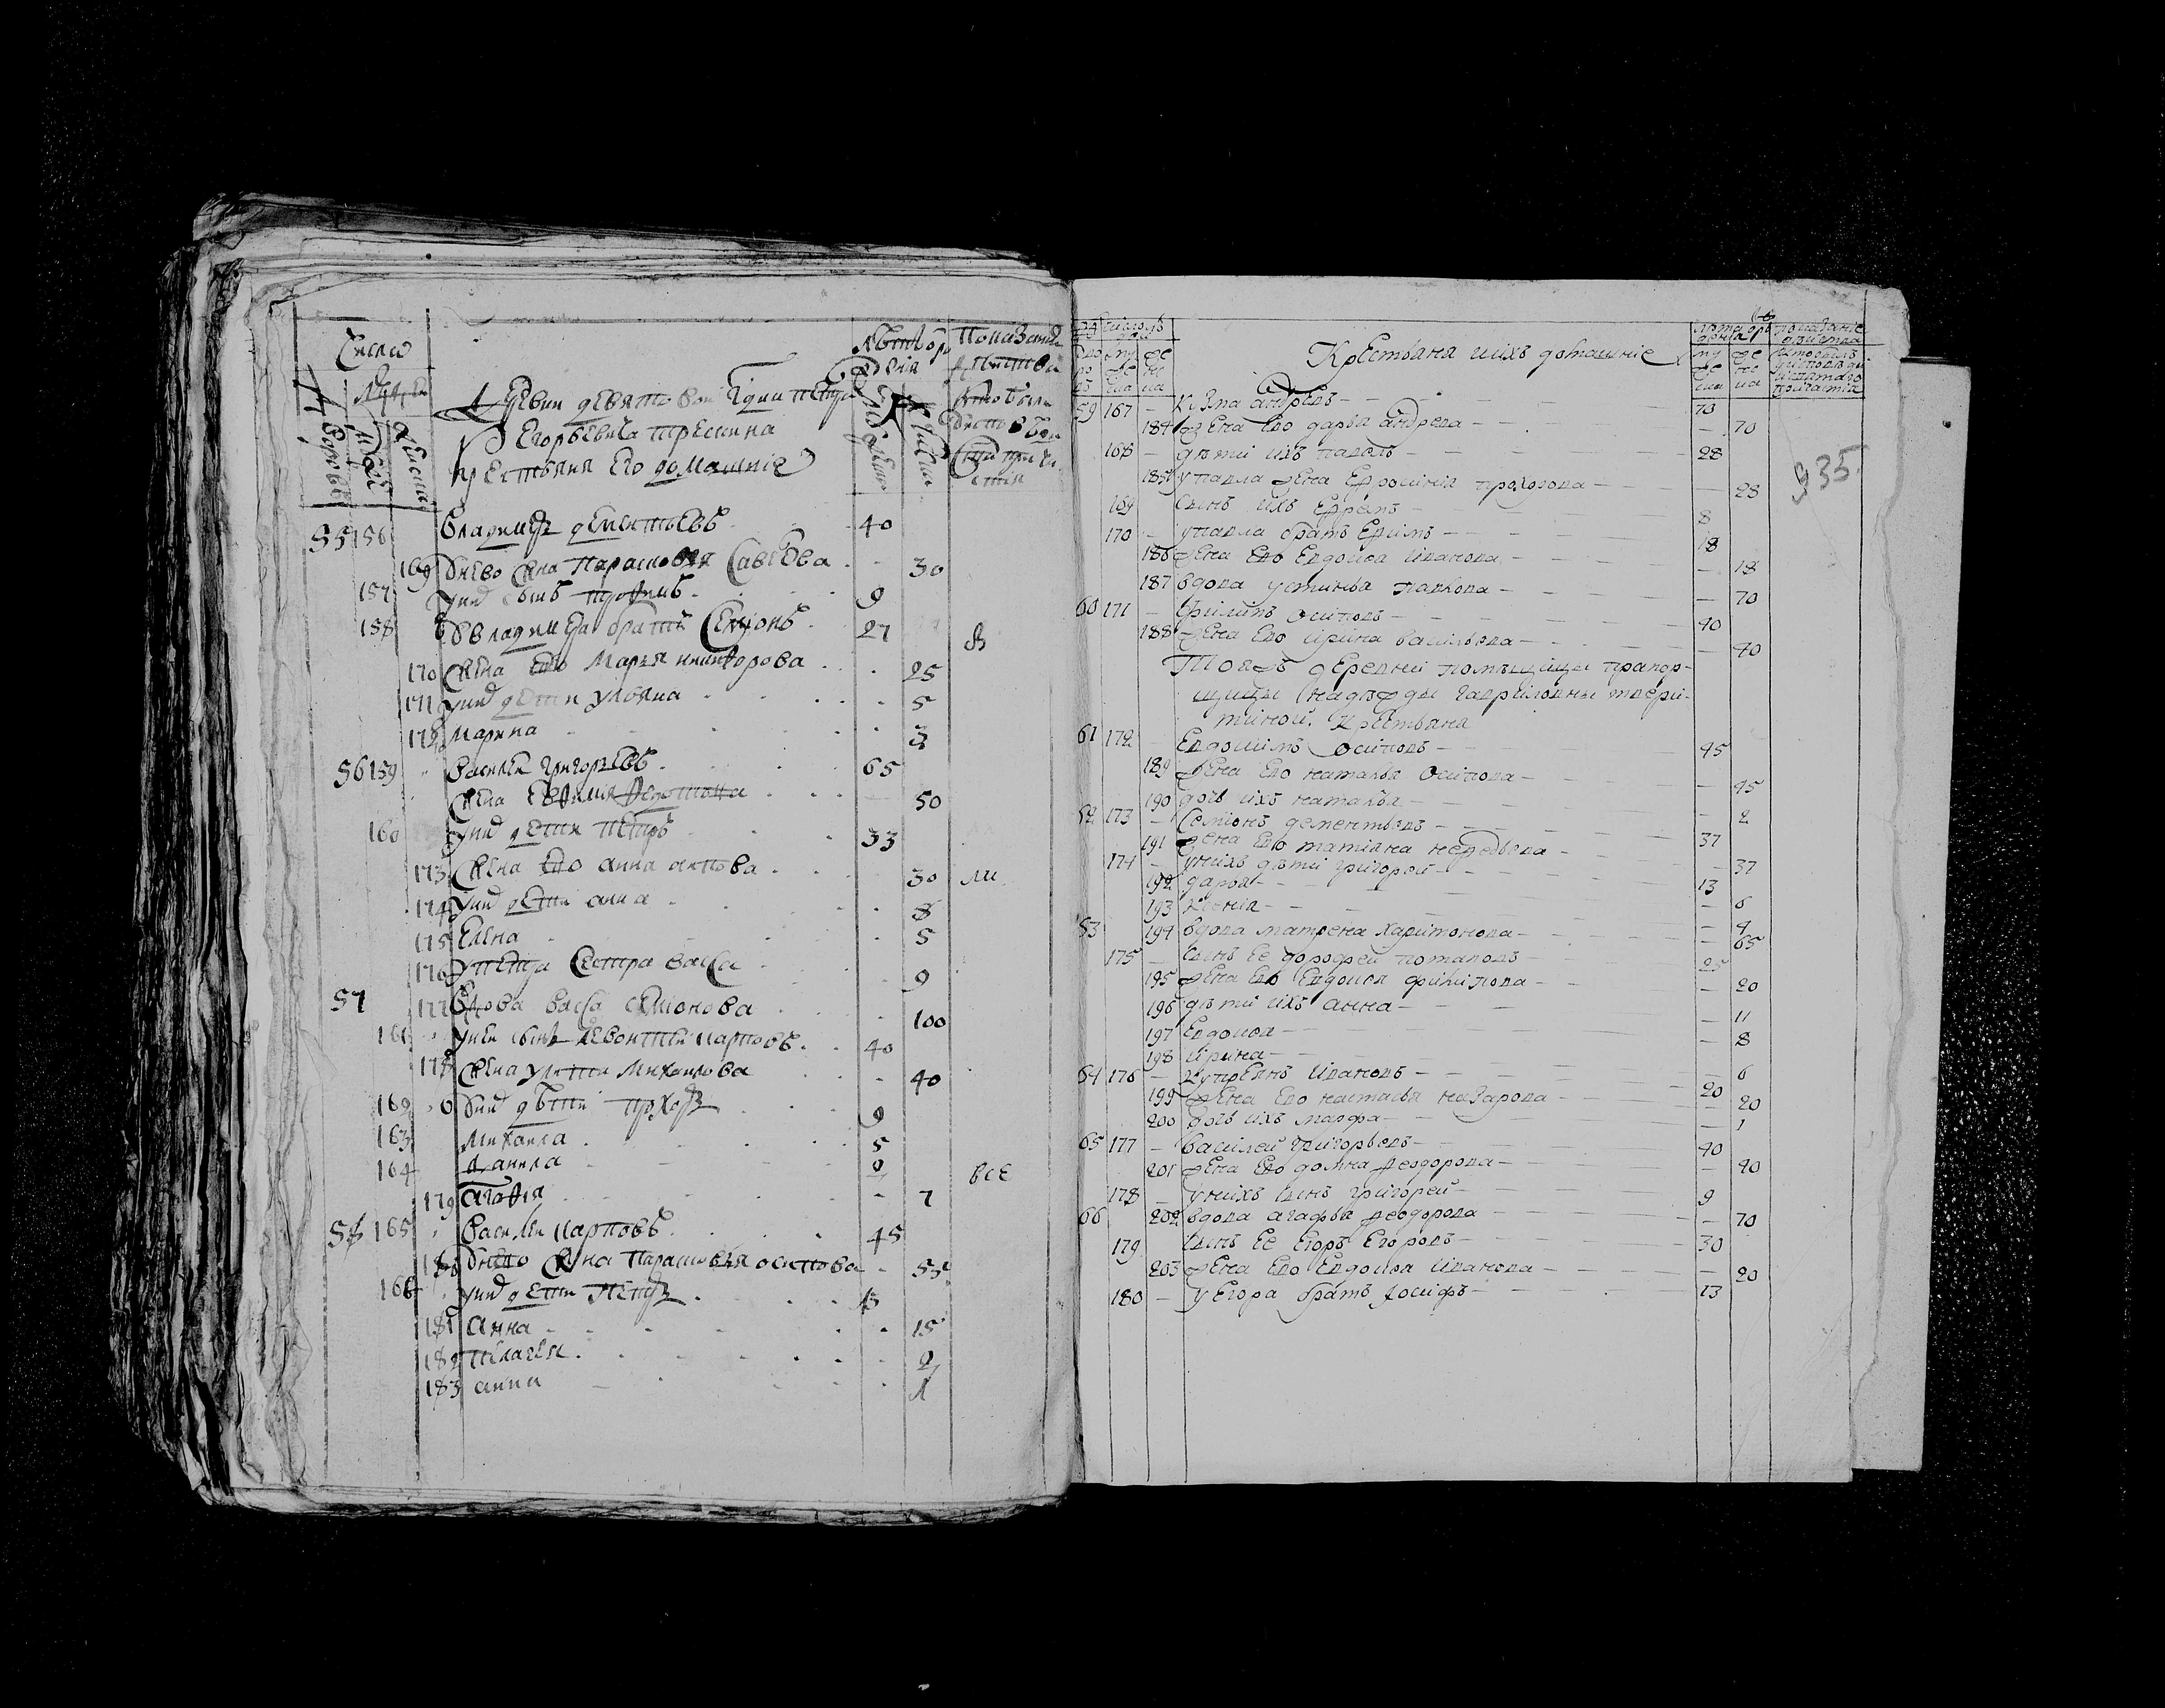 Число
Людей
Дворовъ
Мужеска
Женска
Деревни девятовои Ѳдми петра
Егорьевича трешина
крестьяня Его домашние
Лѣта отъ рождения
Показание
55 156 Владимеръ дементьевъ 40
169 У него жена Парасковья Савельева 30
157 У них сынъ трофимъ 9
158 У владимера братъ Семіонъ 27
170 Жена ево Марья никифорова 25
171 У них дети ульяна 5
172 Марина 3
56 159 Василеи григорьевъ 65
Жена Евфимия 50
160 У них дети петръ 33
173 Жена ево анна акпова 30
174 У них дети анна 8
175 Елена 5
176 У петра сестра васса 9
57 177 Вдова васса семионова 100
161 У неи сынъ левонтеи карповъ 40
178 Жена улита Михаилова 40
162 У них дѣти прохоръ 9
163 Михаила 5
164 данила 2
все
179 агафия 7
58 165 Василеи карповъ 45
180 У него жена Парасковья осипова 55
166 У них дети петръ 13
181 анна 15
182 пелагея 2
183 анна 1
Крестьяня иихъ домашние
935
59 167 Кузма андреевъ 70
184 жена ево дарья андреева 70
168 дѣти ихъ павелъ 28
185 у павла жена Ефросиния прохорова 28
169 Сынъ ихъ Ефремъ 8
170 упавла братъ Ефимъ 18
186 жена ево Евдокия иванова 18
187 вдова устинья павлова 70
60 171 Филипъ осиповъ 40
188 жена ево ирина васильева 40
Тояжъ деревни помѣщицы прапор-
щицы надежды гавриловны твери-
тиной крестьяня
61 172 Евдокимъ осиповъ 45
189 жена ево наталья осипова 45
190 дочь ихъ наталья 2
62 173 Семіонъ дементьевъ 37
191 жена ево татияна 37
174 у нихъ дѣти григорей 13
192 дарья 6
193 Ксения 4
63 194 вдова матрена харитонова 65
175 сынъ ее дорофей потаповъ 25
195 жена ево Евдокия филипова 20
196 дѣти ихъ анна 11
197 Евдокия 8
198 ирина 6
64 176 Купреянъ ивановъ 20
199 жена ево настасья назарова 20
200 дочь ихъ марфа 1
65 177 Василей григорьевъ 40
201 жена ево домна Феодорова 40
178 у нихъ сынъ григорей 9
66 202 вдова агафья Феодорова 70
179 сынъ ее Егоръ Егоровъ 30
203 жена ево Евдокия иванова 20
180 у Егора братъ Иосифъ 13